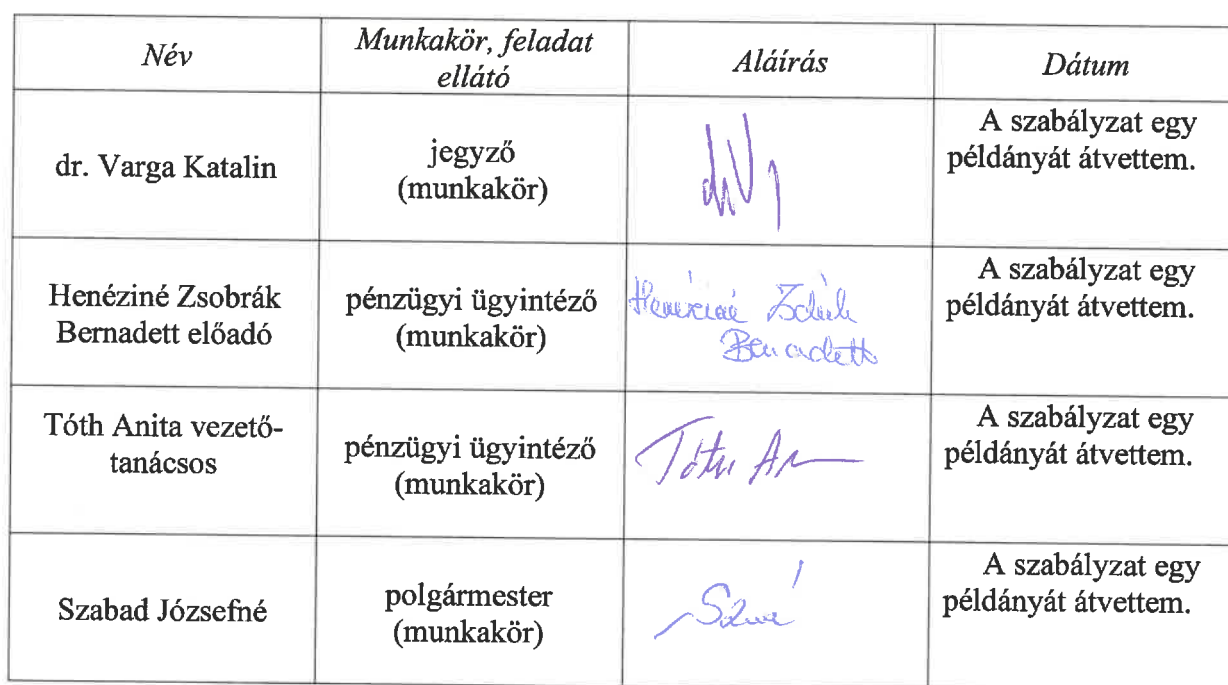 Név
Munkakör, feladat
ellátó
Aláírás
Dátum
dr. Varga Katalin
jegyző
(munkakör)
A szabályzat egy
példányát átvettem.
Henéziné Zsobrák
Bernadett előadó
pénzügyi ügyintéző
(munkakör)
Henéziné Zsobrák
Bernadett
A szabályzat egy
példányát átvettem.
Tóth Anita vezető-
tanácsos
pénzügyi ügyintéző
(munkakör)
Tóth
A szabályzat egy
példányát átvettem.
Szabad Józsefné
polgármester
(munkakör)
A szabályzat egy
példányát átvettem.